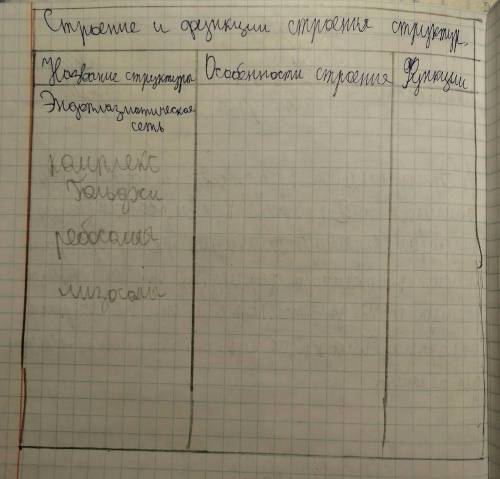 Строение и функции строения структур.
Название структуры Особенности строения Функции
Эндоплазмотическая
сеть
комплекс
Гольджи
ребосомия
лизосомы